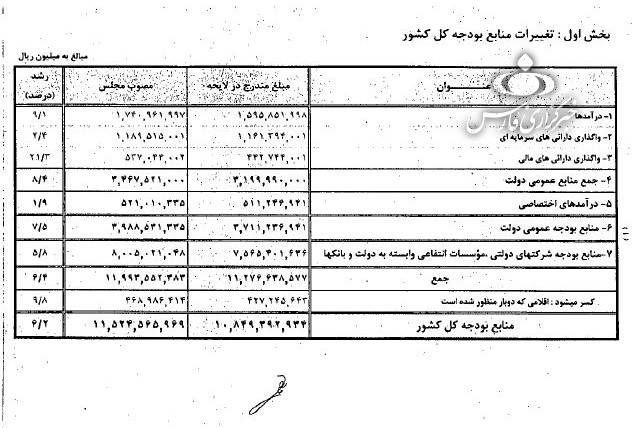 بخش اول : تغییرات منابع بودجه کل کشور
مبالغ به میلیون ریال
عنوان مبلغ مندرج در لایحه مصوب مجلس رشد (درصد)
۱- درآمدها ۱,۵۹۵,۸۵۱,۹۹۸ ۱,۷۴۰,۹۶۱,۹۹۷ ۹/۱
۲- واگذاری دارائی های سرمایه ای ۱,۱۶۱,۳۹۴,۰۰۱ ۱,۱۸۹,۵۱۵,۰۰۱ ۲/۴
۳- واگذاری دارائی های مالی ۴۴۲,۷۴۴,۰۰۱ ۵۳۷,۰۴۴,۰۰۲ ۲۱/۳
۴- جمع منابع عمومی دولت ۳,۱۹۹,۹۹۰,۰۰۰ ۳,۴۶۷,۵۲۱,۰۰۰ ۸/۴
۵- درآمدهای اختصاصی ۵۱۱,۲۴۶,۹۴۱ ۵۲۱,۰۱۰,۳۳۵ ۱/۹
۶- منابع بودجه عمومی دولت ۳,۷۱۱,۲۳۶,۹۴۱ ۳,۹۸۸,۵۳۱,۳۳۵ ۷/۵
۷-منابع بودجه شرکتهای دولتی ،مؤسسات انتفاعی وابسته به دولت و بانکها ۷,۵۶۵,۴۰۱,۶۳۶ ۸,۰۰۵,۰۲۱,۰۴۸ ۵/۸
جمع ۱۱,۲۷۶,۶۳۸,۵۷۷ ۱۱,۹۹۳,۵۵۲,۳۸۳ ۶/۴
کسر میشود : اقلامی که دوبار منظور شده است ۴۲۷,۲۴۵,۶۴۳ ۴۶۸,۹۸۶,۴۱۴ ۹/۸
منابع بودجه کل کشور ۱۰,۸۴۹,۳۹۲,۹۳۴ ۱۱,۵۲۴,۵۶۵,۹۶۹ ۶/۲
خبرگزاری فارس